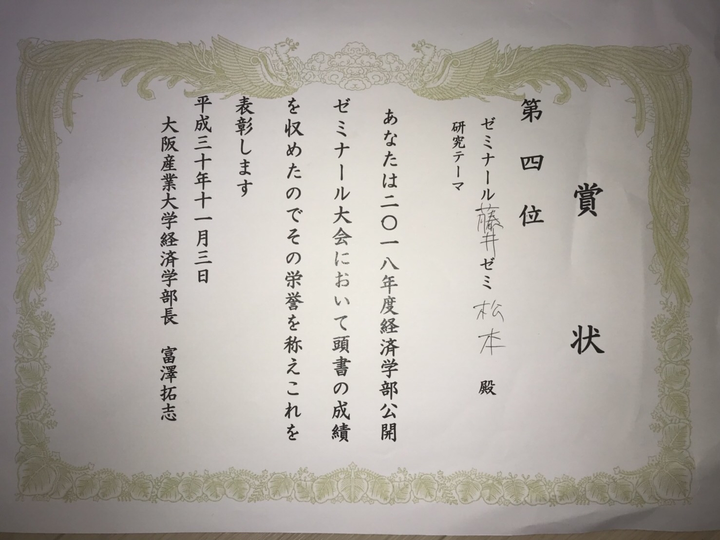 賞状
第四位
ゼミナール藤井ゼミ 松本 殿
研究テーマ
あなたは二〇一八年度経済学部公開
ゼミナール大会において頭書の成績
を収めたのでその栄誉を称えこれを
表彰します
平成三十年十一月三日
大阪産業大学経済学部長 富澤拓志